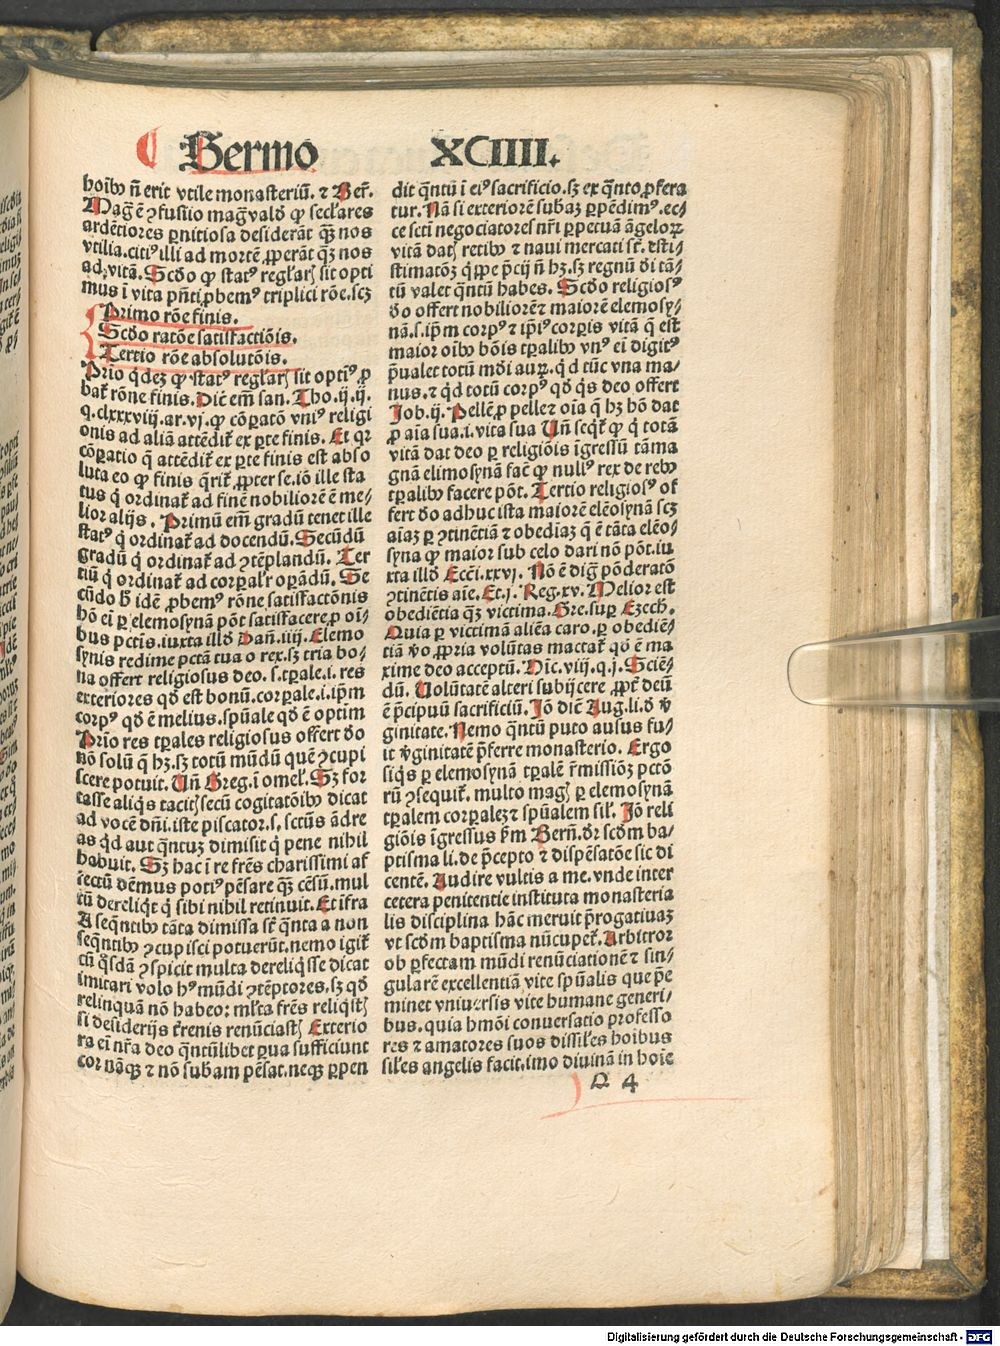 Sermo XCIIII.
hoībꝰ n̄ erit vtile monasteriū. ⁊ Ber̄.
Maḡ ē ꝯfusio maḡ valđ ꝙ secl̄ares
ardētiores ꝑnitiosa desiderāt qꝫ nos
vtilia. citiꝰ illi ad mortē ꝓperāt qꝫ nos
ad vitā. Scđo ꝙ statꝰ regl̄ariꝭ sit opti
mus ī vita pn̄ti ꝓbemꝰ triplici rōe. scꝫ
Primo rōe finis.
Scđo ratōe satisfactiōis.
Tertio rōe absolutōis.
Prīo qđez ꝙ statꝰ regl̄ariꝭ sit optīꝰ ꝓ
bat᷑ rōne finis. Dic̄ em̄ san. Tho. ij. ij.
q. clxxxviij. ar. vj. ꝙ cōꝑatō vniꝰ religi
onis ad aliā attēdit᷑ ex ꝑte finis. Et qꝛ
cōꝑatio q̄ attēdit᷑ ex ꝑte finis est abso
luta eo ꝙ finis q̄rit᷑ ꝓpter se. iō ille sta
tus q̇ ordinat᷑ ad finē nobiliorē ē me/
lior alijs. Primū em̄ gradū tenet ille
statꝰ q̇ ordinat᷑ ad docendū. Secūdū
gradū q̇ ordinat᷑ ad ꝯtēplandū. Ter
tiū q̇ ordinat᷑ ad corꝑal'r oꝑādū. Se
cūdo h̄ idē ꝓbemꝰ rōne satisfactōnis
hō ei ꝑ elemosynā pōt satisfacere ꝓ oī/
bus pctīs. iuxta illđ Dañ. iiij. Elemo
synis redime pctā tua o rex. sꝫ tria bo/
na offert religiosus deo. s. tꝑale. i. res
exteriores qđ est bonū. corꝑale. i. ip̄m
corpꝰ qđ ē melius. spūale qđ ē optim̄
Prīo res tꝑales religiosus offert đo
nō solū q̄ hꝫ. sꝫ totū mūdū quē ꝯcupi
scere potuit. Vn̄ Greg. i omel'. Sꝫ for
tasse aliqs tacitꝭ secū cogitatōibꝰ dicat
ad vocē dn̄i. iste piscator. s. sctūs ādre
as qđ aut qntuꝫ dimisit q̇ pene nihil
habuit. Sꝫ hac ī re frēs charissimi af
fectū dēmus potiꝰ pēsare qꝫ cēsū. mul
tū derelīqt q̇ sibi nihil retinuit. Et ifra
A seqntibꝰ tāta dimissa st̄ qnta a non
seqntibꝰ ꝯcupisci potuerūt. nemo igit᷑
cū q̇sdā ꝯspicit multa dereliq̇sse dicat
imitari volo hꝰ mūdi ꝯtēptores. sꝫ qđ
relinquā nō habeo: ml'ta frēs reliqstꝭ
si desiderijs t'renis renūciastꝭ Exterio
ra ei nr̄a deo qntūlibet ꝑua sufficiunt
cor nāqꝫ ⁊ nō subam pēsat. neqꝫ ꝑpen
dit qntū ī eiꝰ sacrificio. sꝫ ex qnto ꝓfera
tur. Nā si exteriorē subaꝫ ꝑpēdimꝰ. ec/
ce scti negociatores nr̄i ꝑpetuā āgeloꝝ
vitā datꝭ retibꝰ ⁊ naui mercati st̄. esti/
stimatōꝫ q̇ppe p̄cij n̄ hꝫ. sꝫ regnū đi tā/
tū valet qntū habes. Scđo religiosꝰ
đo offert nobiliorē ⁊ maiorē elemosy/
nā. s. ip̄m corpꝰ ⁊ ip̄iꝰ corꝑis vitā q̄ est
maior oībꝰ bōis tꝑalibꝰ vnꝰ ei digitꝰ
p̄ualet totū mđi auꝝ. qđ tūc vna ma/
nus. ⁊ qđ totū corpꝰ qđ qs deo offert
Job. ij. Pellē ꝓ pelle ⁊ oīa q̄ hꝫ hō dat
ꝓ aīa sua. i. vita sua Vn̄ seqt᷑ ꝙ q̇ totā
vitā dat deo ꝑ religiōis īgressū tāma
gnā elimosynā fac̄ ꝙ nullꝰ rex de rebꝰ
tꝑalibꝰ facere pōt. Tertio religiosꝰ of
fert đo adhuc ista maiorē eleōsynā scꝫ
aīaꝫ ꝑ ꝯtinētiā ⁊ obediaꝫ q̄ ē tāta eleō/
syna ꝙ maior sub celo dari nō pōt. iu
xta illđ Ecc̄i. xxvj. Nō ē dig̃ pōderatō
ꝯtinētis aīe. Et. j. Reg. xv. Melior est
obediētia qꝫ victima. Gre. suꝑ Ezech.
Quia ꝑ victimā aliēa caro. ꝑ obediē/
tiā v̇o ꝓpria volūtas mactat᷑ qđ ē ma
xime deo acceptū. Dīc. viij. q. j. Sciē/
dū. Uolūtatē alteri subijcere ꝓpt̄ deū
ē p̄cipuū sacrificiū. Jō dic̄ Aug. li. đ v̇
ginitate. Nemo qntū puto ausus fu/
it v̇ginitatē p̄ferre monasterio. Ergo
siqs ꝑ elemosynā tꝑalē r̄missiōꝫ pctō
rū ꝯsequit᷑. multo magꝭ ꝑ elemosynā
tꝑalem corꝑaleꝫ ⁊ spūalem sil'. Jō reli
giōis īgressus ẜm Bern̄. dr̄ scđm ba/
ptisma li. de p̄cepto ⁊ dispēsatōe sic di
centē. Audire vultis a me. vnde inter
cetera penitentie instituta monasteria
lis disciplina hāc meruit p̄rogatiuaꝫ
vt scđm baptisma nūcupet᷑. Arbitror
ob ꝑfectam mūdi renūciationē ⁊ sin/
gularē excellentiā vite spūalis que p̄e
minet vniuersis vite humane generi/
bus. quia hmōi conuersatio professo
res ⁊ amatores suos dissil'es hoibus
sil'es angelis facit. imo diuinā in hoīe
Q 4
Digitalisierung gefördert durch die Deutsche Forschungsgemeinschaft - DFG